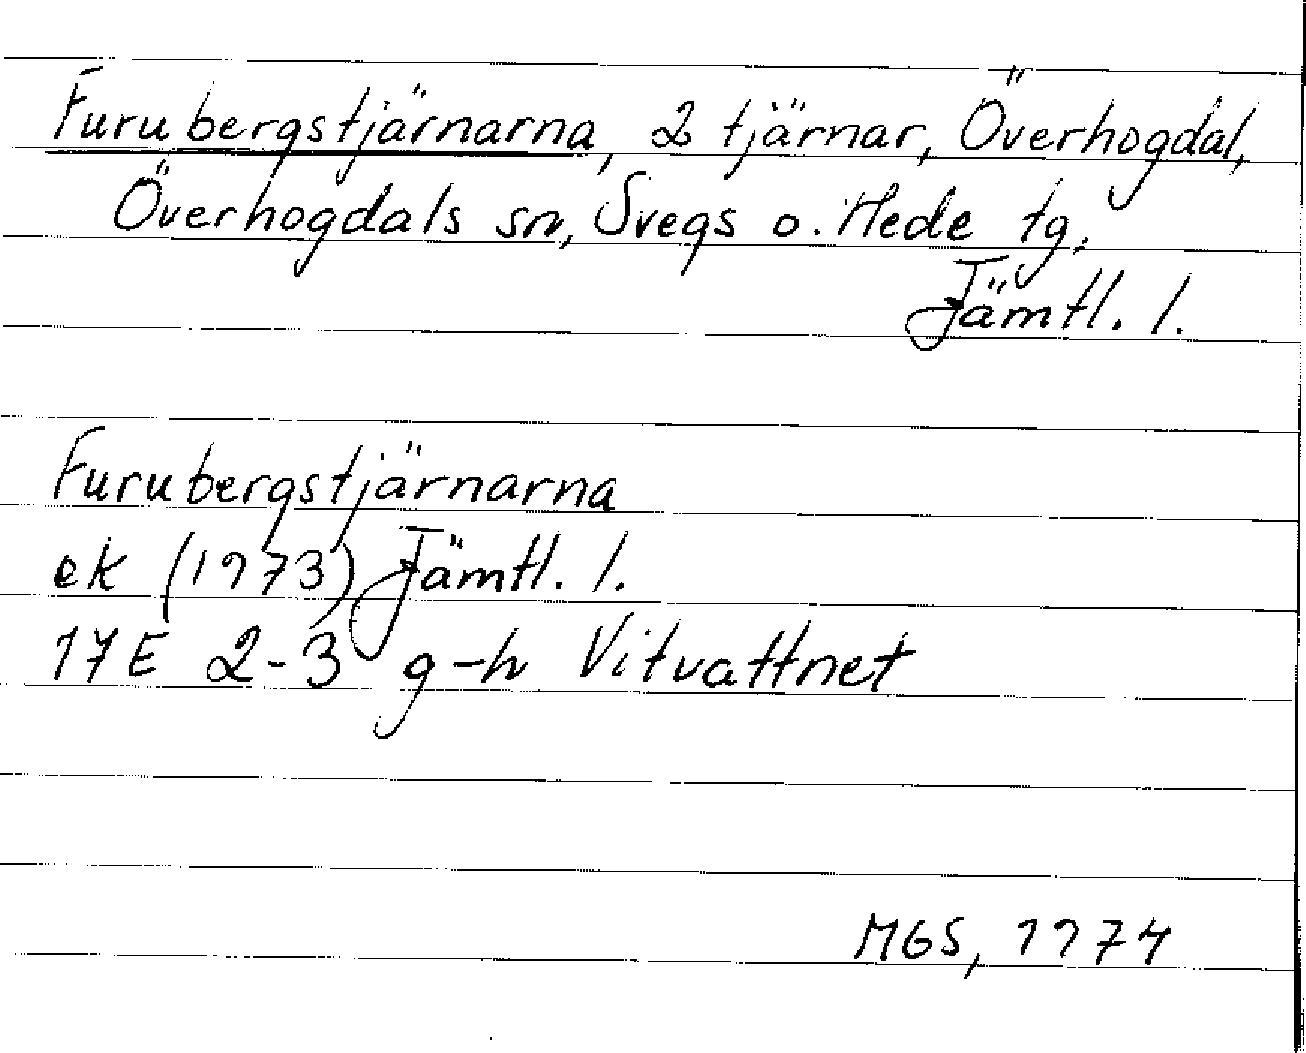 Furubergstjärnarna, 2 tjärnar, Överhogdal,
Överhogdals sn, Svegs o. Hede tg,
Jämtl. l.
Furubergstjärnarna
ek (1973) Jämtl. l.
17E 2-3 g-h Vitvattnet
MGS, 1974